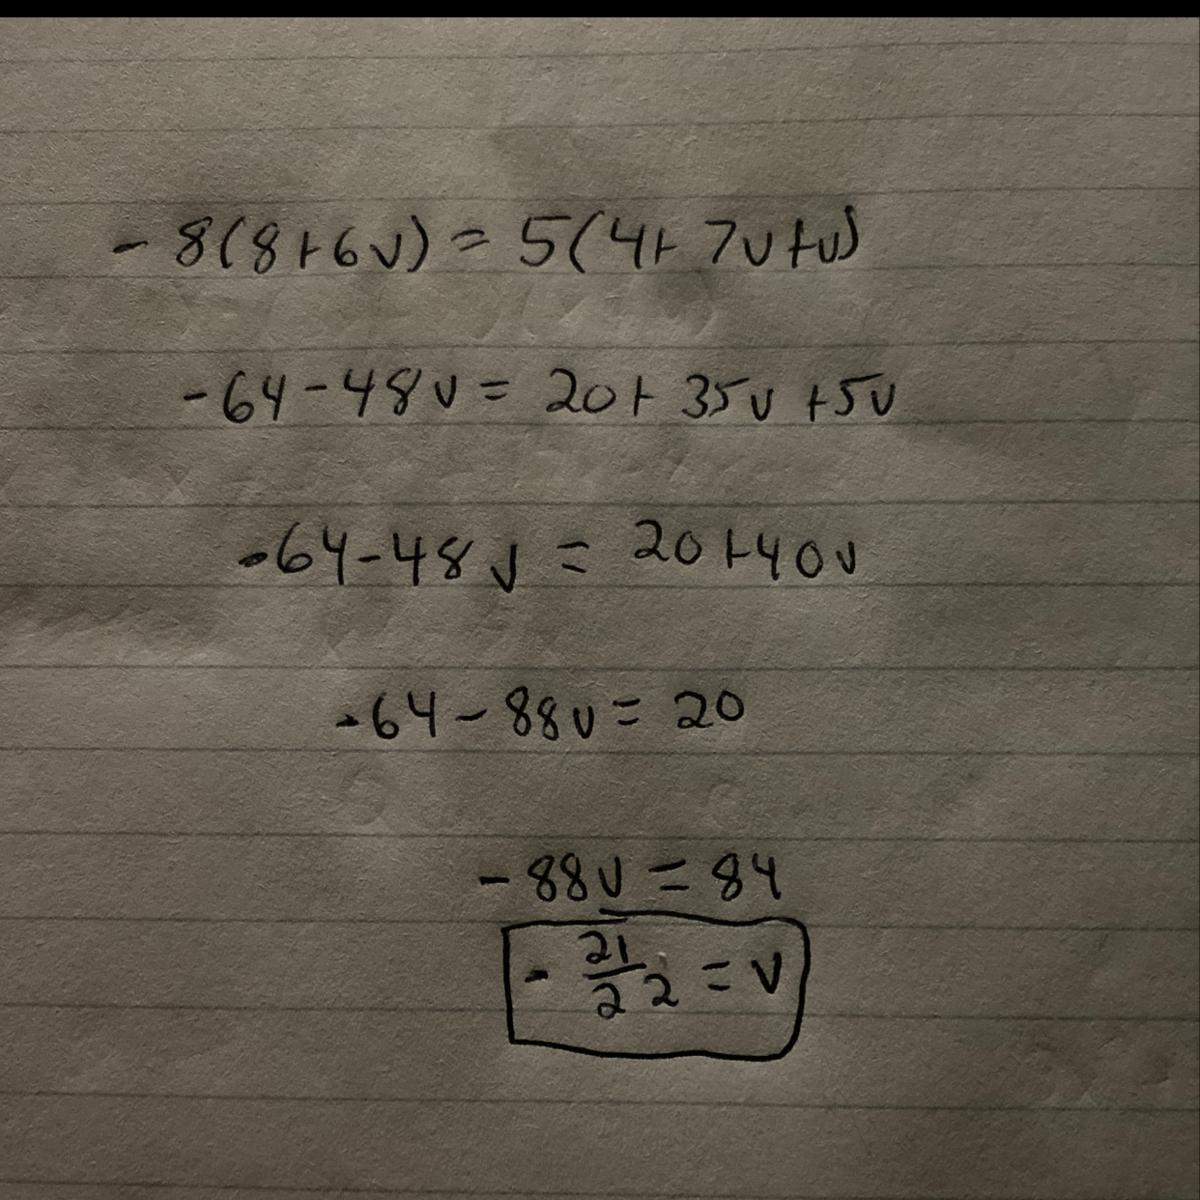 -8(8+6v) = 5(4+7v+v)
-64-48v = 20+35v+5v
-64-48v = 20+40v
-64-88v = 20
-88v = 84
-21/22 = v